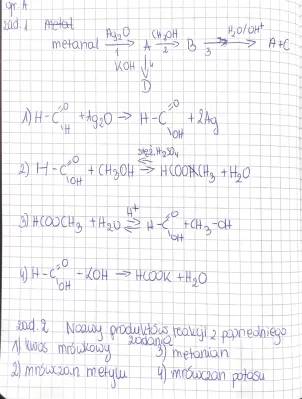 gr. A
zad. 1 metal
metanal Ag₂O → 1 A CH₃OH → 2 B → 3 H₂O/OH⁺ A+C
KOH ↓ 4
D
1) H-C =O OH + Ag₂O → H-C =O OH + 2Ag
2) H-C =O OH + CH₃OH stęż. H₂SO₄ ⇌ HCOOCH₃ + H₂O
3) HCOOCH₃ + H₂O H⁺ ⇌ H-C =O OH + CH₃-OH
4) H-C =O OH - KOH → HCOOK + H₂O
zad. 2 Nazwy produktów reakcji z poprzedniego
zadania
1) kwas mrówkowy 3) metanian
2) mrówczan metylu 4) mrówczan potasu